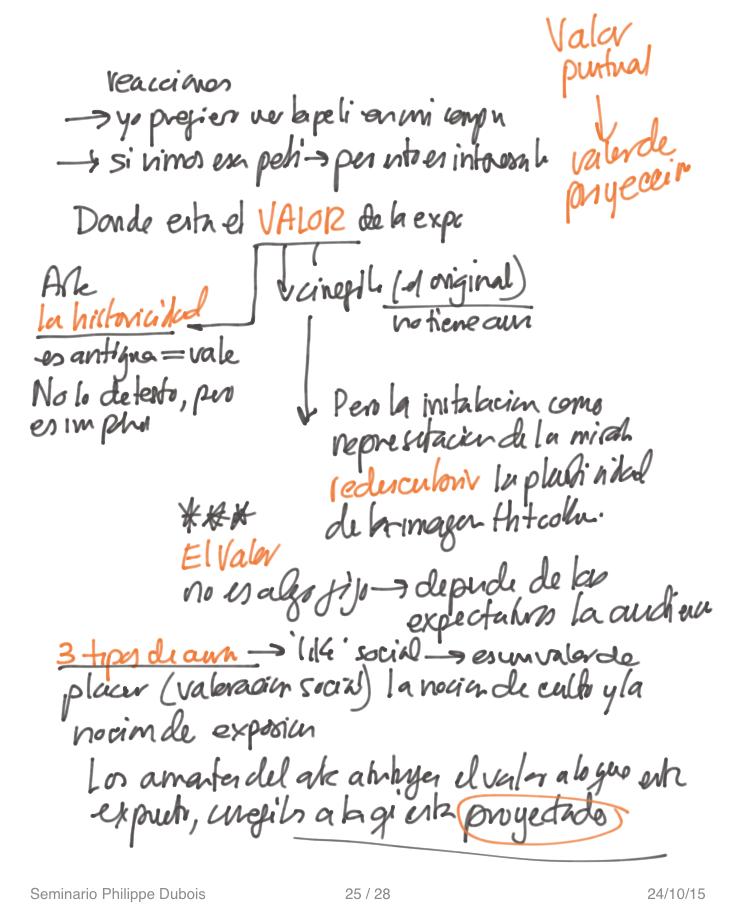 Valor
puntual
valor de
proyeccin
reacciones
→ yo prefiero ver la peli en mi compu
→ si vimos esa peli → per esto es interesante
Donde esta el VALOR de la expo
Arte
la historicidad
es antigua = vale
No lo detesto, pero
es
cinefilo (el original)
no tiene aura
Pero la instalacion como
representacion de la mirada
redescubrir la plasticidad
de la imagen
***
El Valor
no es algo fijo → depende de las
expectativas la audiencia
3 tipos de aura → 'like' social → es un valor de
placer (valoracion social) la nocion de culto y la
nocion de exposicion
Los amantes del arte atribuyen el valor a lo que esta
expuesto, cinefilos a lo q esta proyectado
Seminario Philippe Dubois
25 / 28
24/10/15